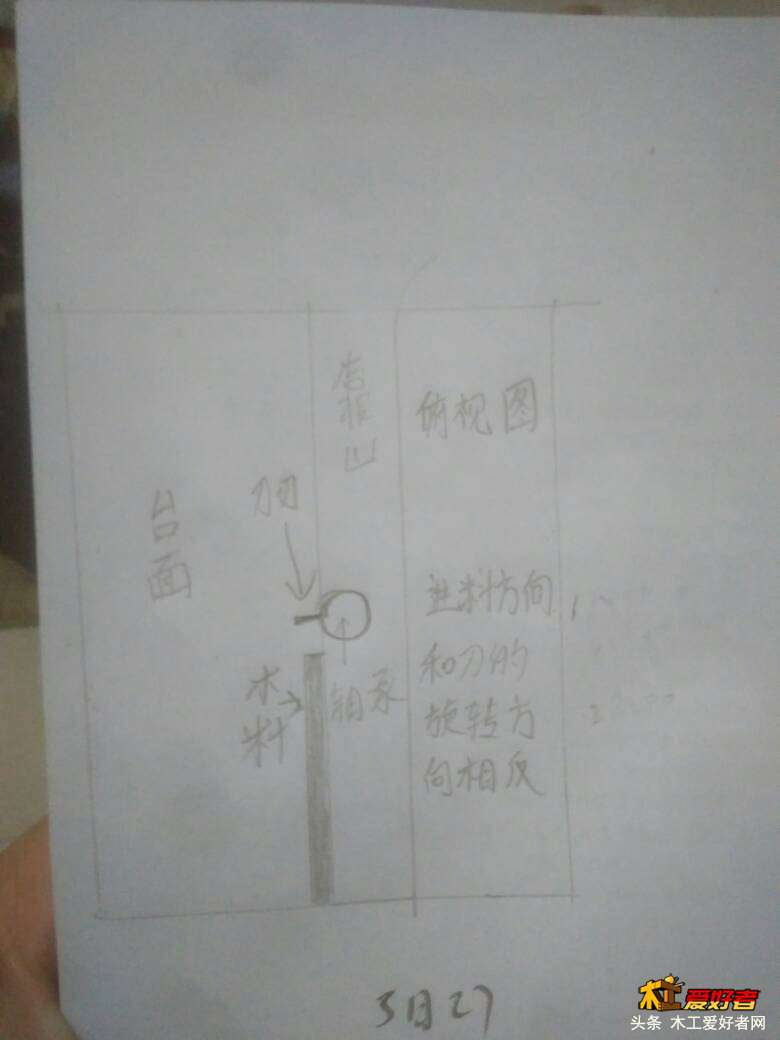 俯视图
刀刃
台面
进料方向
和刀的
旋转方
向相反
木料
轴承
5日27
木工爱好者
头条 木工爱好者网